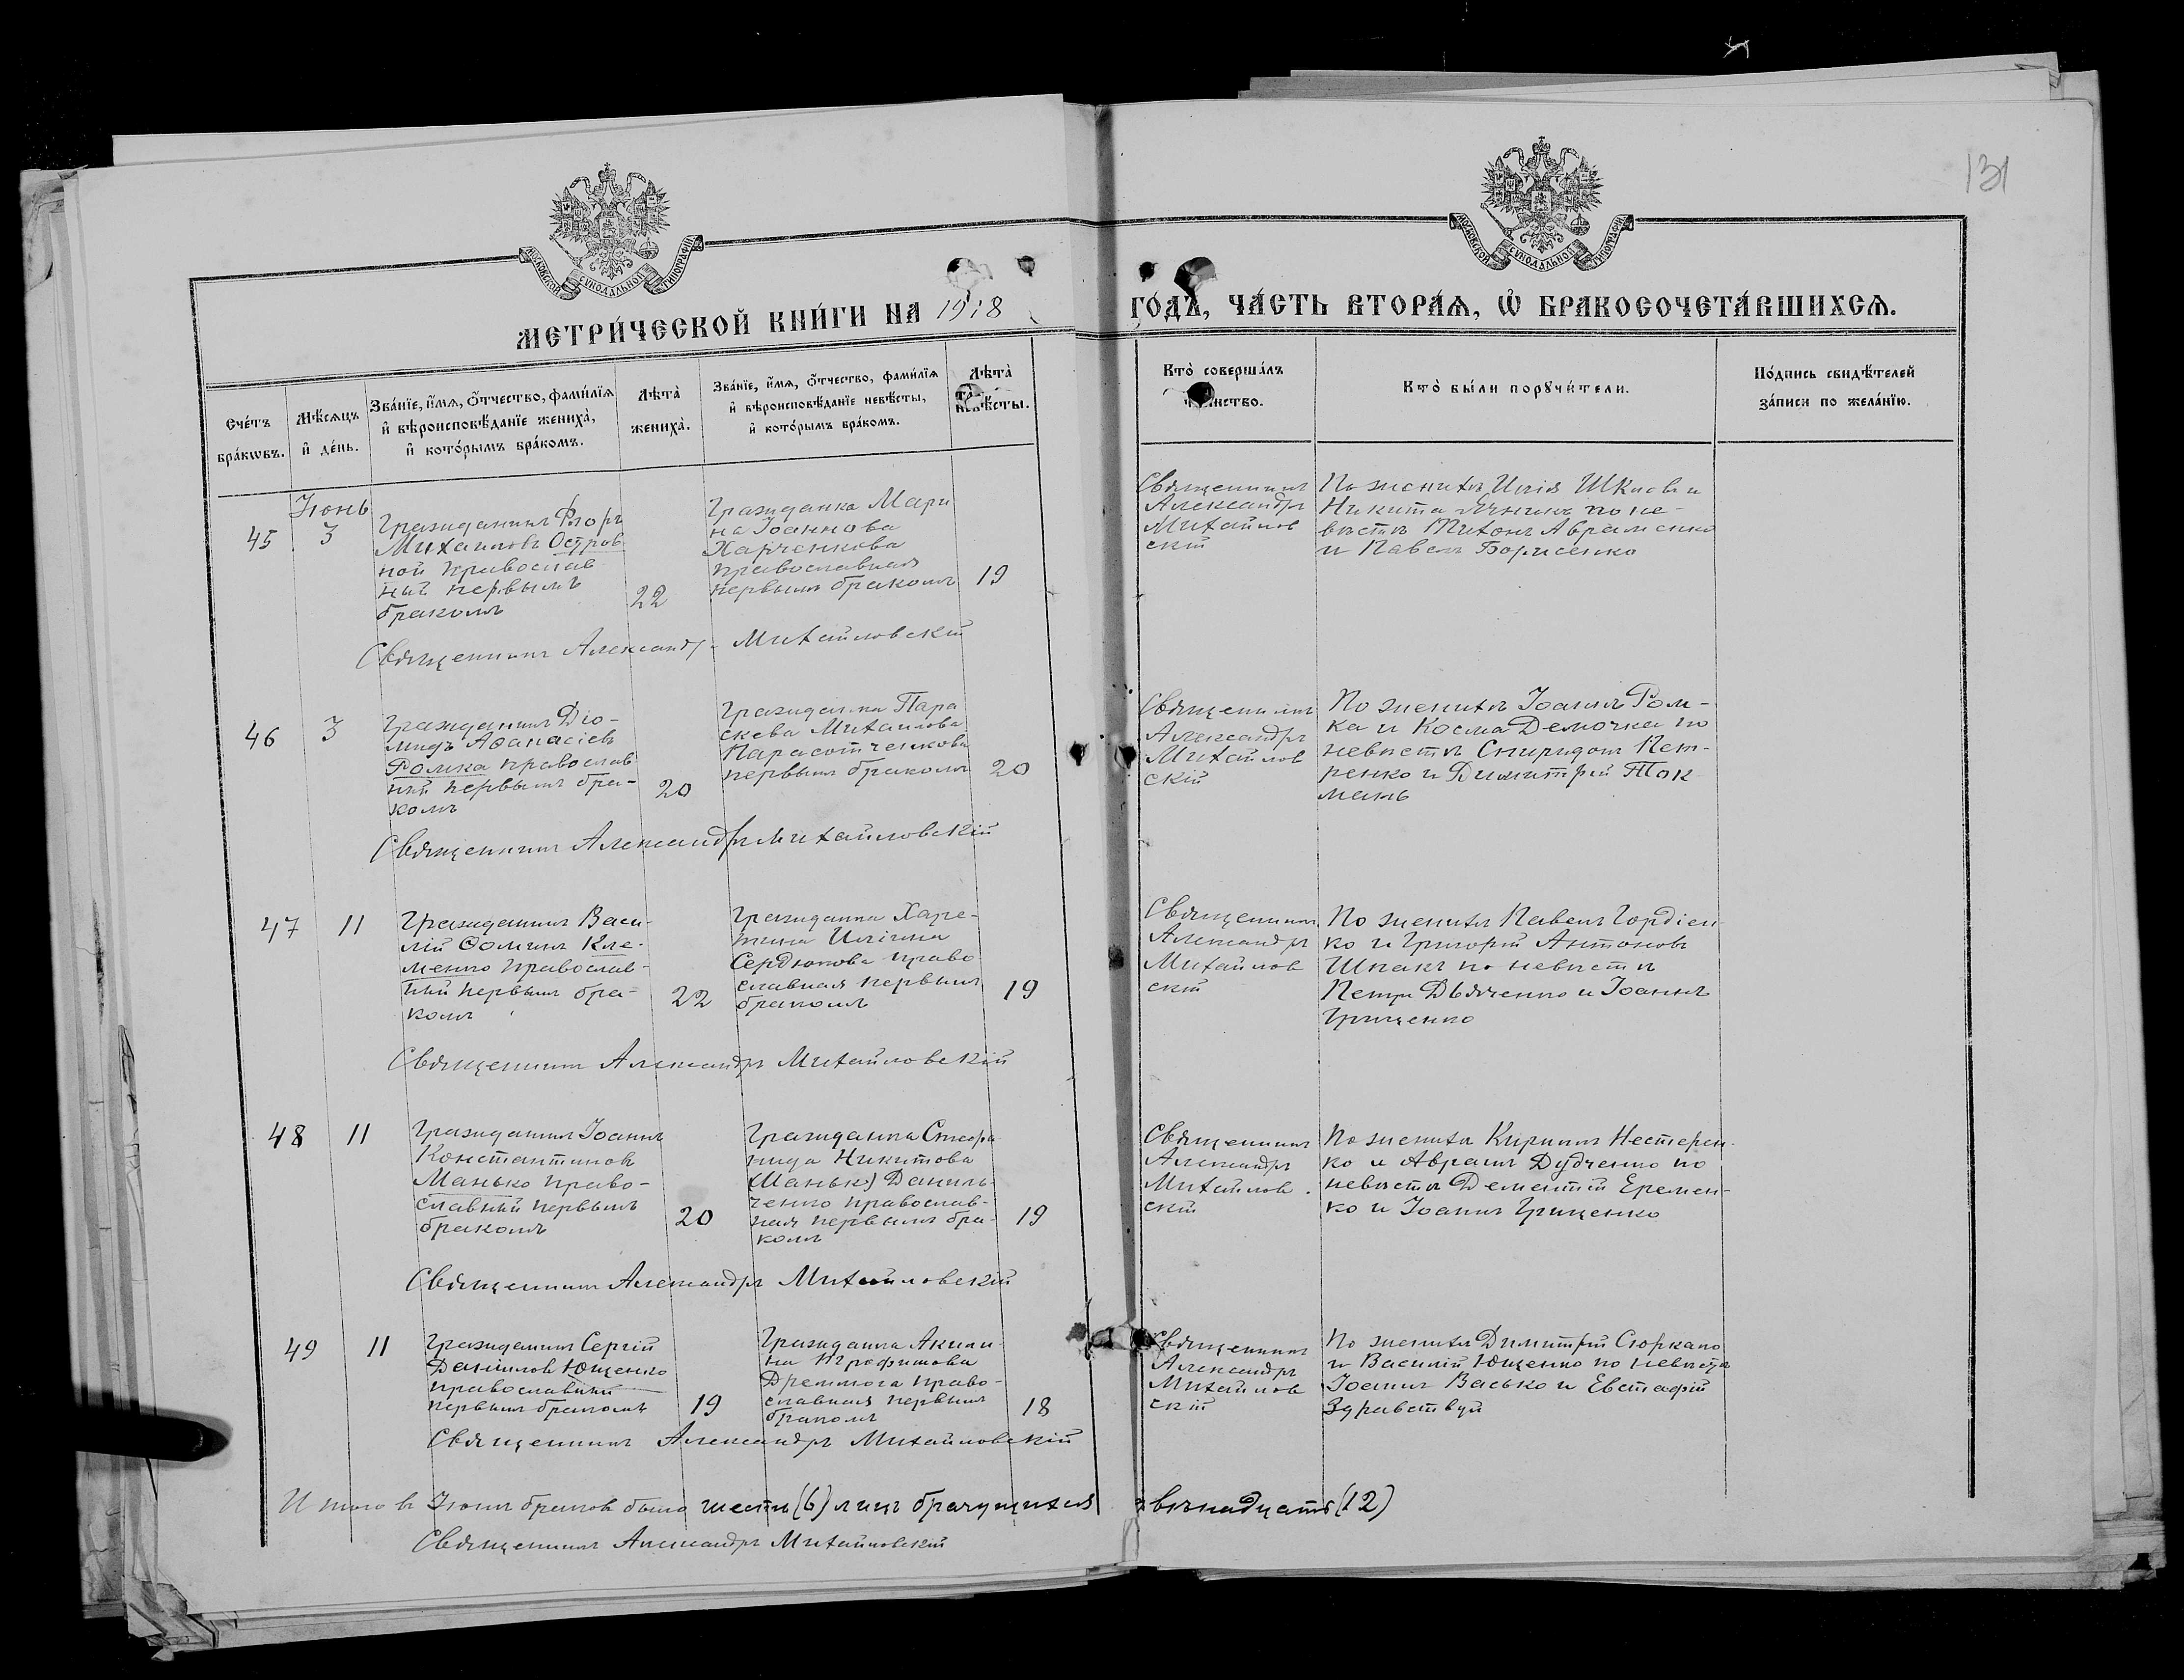 131
МОСКОВСКОЙ СѴНОДАЛЬНОЙ ТИПОГРАФІИ
МОСКОВСКОЙ СѴНОДАЛЬНОЙ ТИПОГРАФІИ
МЕТРИ́ЧЕСКОЙ КНИ́ГИ НА 1918 ГО́ДЪ, ЧА́СТЬ ВТОРА́Ѧ, Ѽ БРАКОСОЧЕТА́ВШИХСѦ.
Сче́тъ бра́кѡвъ.
Мѣ́сѧцъ и҆ де́нь.
Зва́нїе, и҆́мѧ, ѻ҆́тчество, фами́лїѧ
и҆ вѣроисповѣ́данїе жениха̀,
и҆ кото́рымъ бра́комъ.
Лѣ́та̀ жениха̀.
Зва́нїе, и҆́мѧ, ѻ҆́тчество, фами́лїѧ
и҆ вѣроисповѣ́данїе невѣ́сты,
и҆ кото́рымъ бра́комъ.
Лѣ́та̀
невѣ́сты.
Кто̀ соверша́лъ
Кто̀ бы́ли порꙋчи́тели.
По́дпись свидѣ́телей
за́писи по жела́нїю.
Іюнь
45
3
Гражданинъ Флоръ
Михаиловъ Остров
ной православ
ный первымъ
бракомъ
22
Гражданка Мари
на Іоаннова
Харченкова
православная
первымъ бракомъ
19
Священникъ
Александръ
Михайлов
скій
По женихѣ Илія и
Никита по не-
вѣстѣ Тихонъ Авраменко
и Павелъ Борисенко
Священникъ Александръ Михайловскій
46
3
Гражданинъ Діо-
мидъ Аѳанасіевъ
Ромка православ
ный первымъ бра-
комъ
20
Гражданка Пара
скева Михаилова
первымъ бракомъ
20
Священникъ
Александръ
Михайлов
скій
По женихѣ Іоаннъ Ром-
ка и Косма Демочка по
невѣстѣ Спиридонъ Пет-
ренко и Димитрій Ток
мань
Священникъ Александръ Михайловскій
47
11
Гражданинъ Васи-
лій Ѳоминъ Кле-
менко православ-
ный первымъ бра-
комъ
22
Гражданка Харе-
тина Иліина
Сердюкова право
славная первымъ
бракомъ
19
Священникъ
Александръ
Михайлов
скій
По женихѣ Павелъ Гордіен-
ко и Григорій Антоновъ
Шпакъ по невѣстѣ
Петръ Дьяченко и Іоаннъ
Грищенко
Священникъ Александръ Михайловскій
48
11
Гражданинъ Іоаннъ
Константиновъ
Манько право-
славный первымъ
бракомъ
20
Гражданка Стефа
нида Никитова
(Шанько) Даниль-
ченко православ-
ная первымъ бра-
комъ
19
Священникъ
Александръ
Михайлов
скій
По женихѣ Кириллъ Нестерен-
ко и Авраамъ Дудченко по
невѣстѣ Дементій Еремен-
ко и Іоаннъ Грищенко
Священникъ Александръ Михайловскій
49
11
Гражданинъ Сергій
Даніиловъ Ющенко
православный
первымъ бракомъ
19
Гражданка Акили
на
право-
славная первымъ
бракомъ
18
Священникъ
Александръ
Михайлов
скій
По женихѣ Димитрій
и Василій Ющенко по невѣстѣ
Іоаннъ Васько и Евстафій
Здравствуй
Священникъ Александръ Михайловскій
Итого въ Іюнѣ браковъ было шесть (6) лицъ брачущихся двѣнадцать (12)
Священникъ Александръ Михайловскій